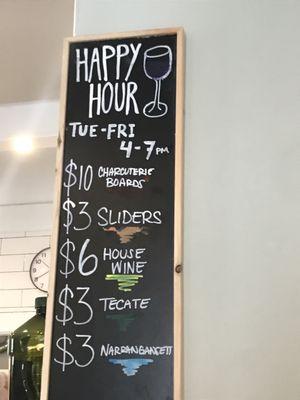 HAPPY
HOUR
TUE-FRI
4-7PM
$10 CHARCUTERIE
BOARDS
$3 SLIDERS
$6 HOUSE
WINE
$3 TECATE
$3 NARRANGANSETT